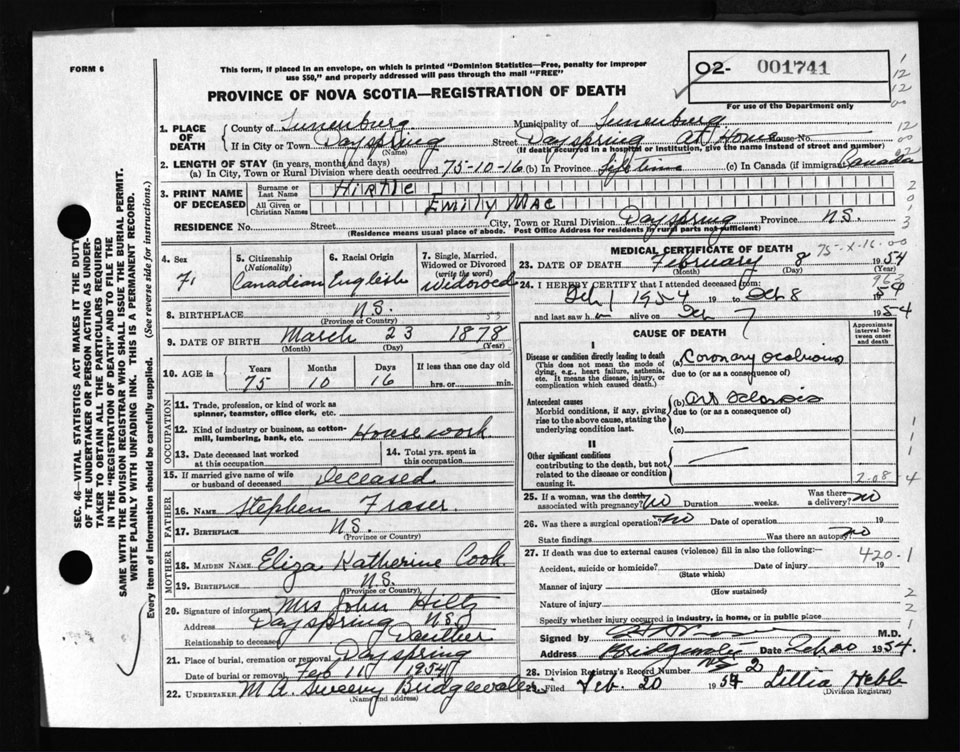 FORM 6
This form, if placed in an envelope, on which is printed "Dominion Statistics—Free, penalty for improper
use $50," and properly addressed will pass through the mail "FREE"
O2- 001741
For use of the Department only
PROVINCE OF NOVA SCOTIA—REGISTRATION OF DEATH
1. PLACE OF DEATH
County of Lunenburg Municipality of Lunenburg
If in City or Town Dayspring Street Dayspring At Home House No.
(Name) (If death occurred in a hospital or institution, give the name instead of street and number)
2. LENGTH OF STAY (in years, months and days)
(a) In City, Town or Rural Division where death occurred 75-10-16 (b) In Province Life time (c) In Canada (if immigrant) Canadian
3. PRINT NAME OF DECEASED
Surname or Last Name Hirtle
All Given or Christian Names Emily Mae
RESIDENCE No. Street City, Town or Rural Division Dayspring Province N.S.
(Residence means usual place of abode. Post Office Address for residents in rural parts not sufficient)
4. Sex F.
5. Citizenship (Nationality) Canadian
6. Racial Origin English
7. Single, Married, Widowed or Divorced (write the word) Widowed
8. BIRTHPLACE N.S.
(Province or Country)
9. DATE OF BIRTH March 23 1878
(Month) (Day) (Year)
10. AGE in Years Months Days If less than one day
75 10 16 hrs. or min.
OCCUPATION
11. Trade, profession, or kind of work as spinner, teamster, office clerk, etc.
12. Kind of industry or business, as cotton-mill, lumbering, bank, etc. Housework
13. Date deceased last worked at this occupation
14. Total yrs. spent in this occupation
15. If married give name of wife or husband of deceased Deceased
FATHER
16. NAME Stephen Fraser
17. BIRTHPLACE N.S.
(Province or Country)
MOTHER
18. MAIDEN NAME Eliza Katherine Cook
19. BIRTHPLACE N.S.
(Province or Country)
20. Signature of informant Mrs John Hiltz
Address Dayspring N.S.
Relationship to deceased Daughter
21. Place of burial, cremation or removal Dayspring
Date of burial or removal Feb 11 1954
22. UNDERTAKER M A Sweeny Bridgewater
MEDICAL CERTIFICATE OF DEATH 75-X-16-00
23. DATE OF DEATH February 8 1954
(Month) (Day)
24. I HEREBY CERTIFY that I attended deceased from:
Feb 1 1954 19 to Feb 8 1954
and last saw h alive on Feb 7 1954
CAUSE OF DEATH
Approximate interval between onset and death
I
Disease or condition directly leading to death
(This does not mean the mode of dying, e.g., heart failure, asthenia, etc. It means the disease, injury, or complication which caused death.)
(a) Coronary
due to (or as a consequence of)
Antecedent causes
Morbid conditions, if any, giving rise to the above cause, stating the underlying condition last.
(b) Art
due to (or as a consequence of)
(c)
II
Other significant conditions
contributing to the death, but not related to the disease or condition causing it.
25. If a woman, was the death associated with pregnancy? No Duration weeks. Was there a delivery? no
26. Was there a surgical operation? no Date of operation 19
State findings Was there an autopsy no
27. If death was due to external causes (violence) fill in also the following:—
420-1
Accident, suicide or homicide? Date of injury 19
(State which)
Manner of injury
(How sustained)
Nature of injury
Specify whether injury occurred in industry, in home, or in public place
Signed by M.D.
Address Bridgewater Date 1954
28. Division Registrar's Record Number 2
29. Filed Feb. 20 1954 Lillia Hebb
(Division Registrar)
SEC. 46—VITAL STATISTICS ACT MAKES IT THE DUTY
OF THE UNDERTAKER OR PERSON ACTING AS UNDER-
TAKER TO OBTAIN ALL THE PARTICULARS REQUIRED
IN THE "REGISTRATION OF DEATH" AND TO FILE THE
SAME WITH THE DIVISION REGISTRAR WHO SHALL ISSUE THE BURIAL PERMIT.
WRITE PLAINLY WITH UNFADING INK. THIS IS A PERMANENT RECORD.
Every item of information should be carefully supplied. (See reverse side for instructions.)